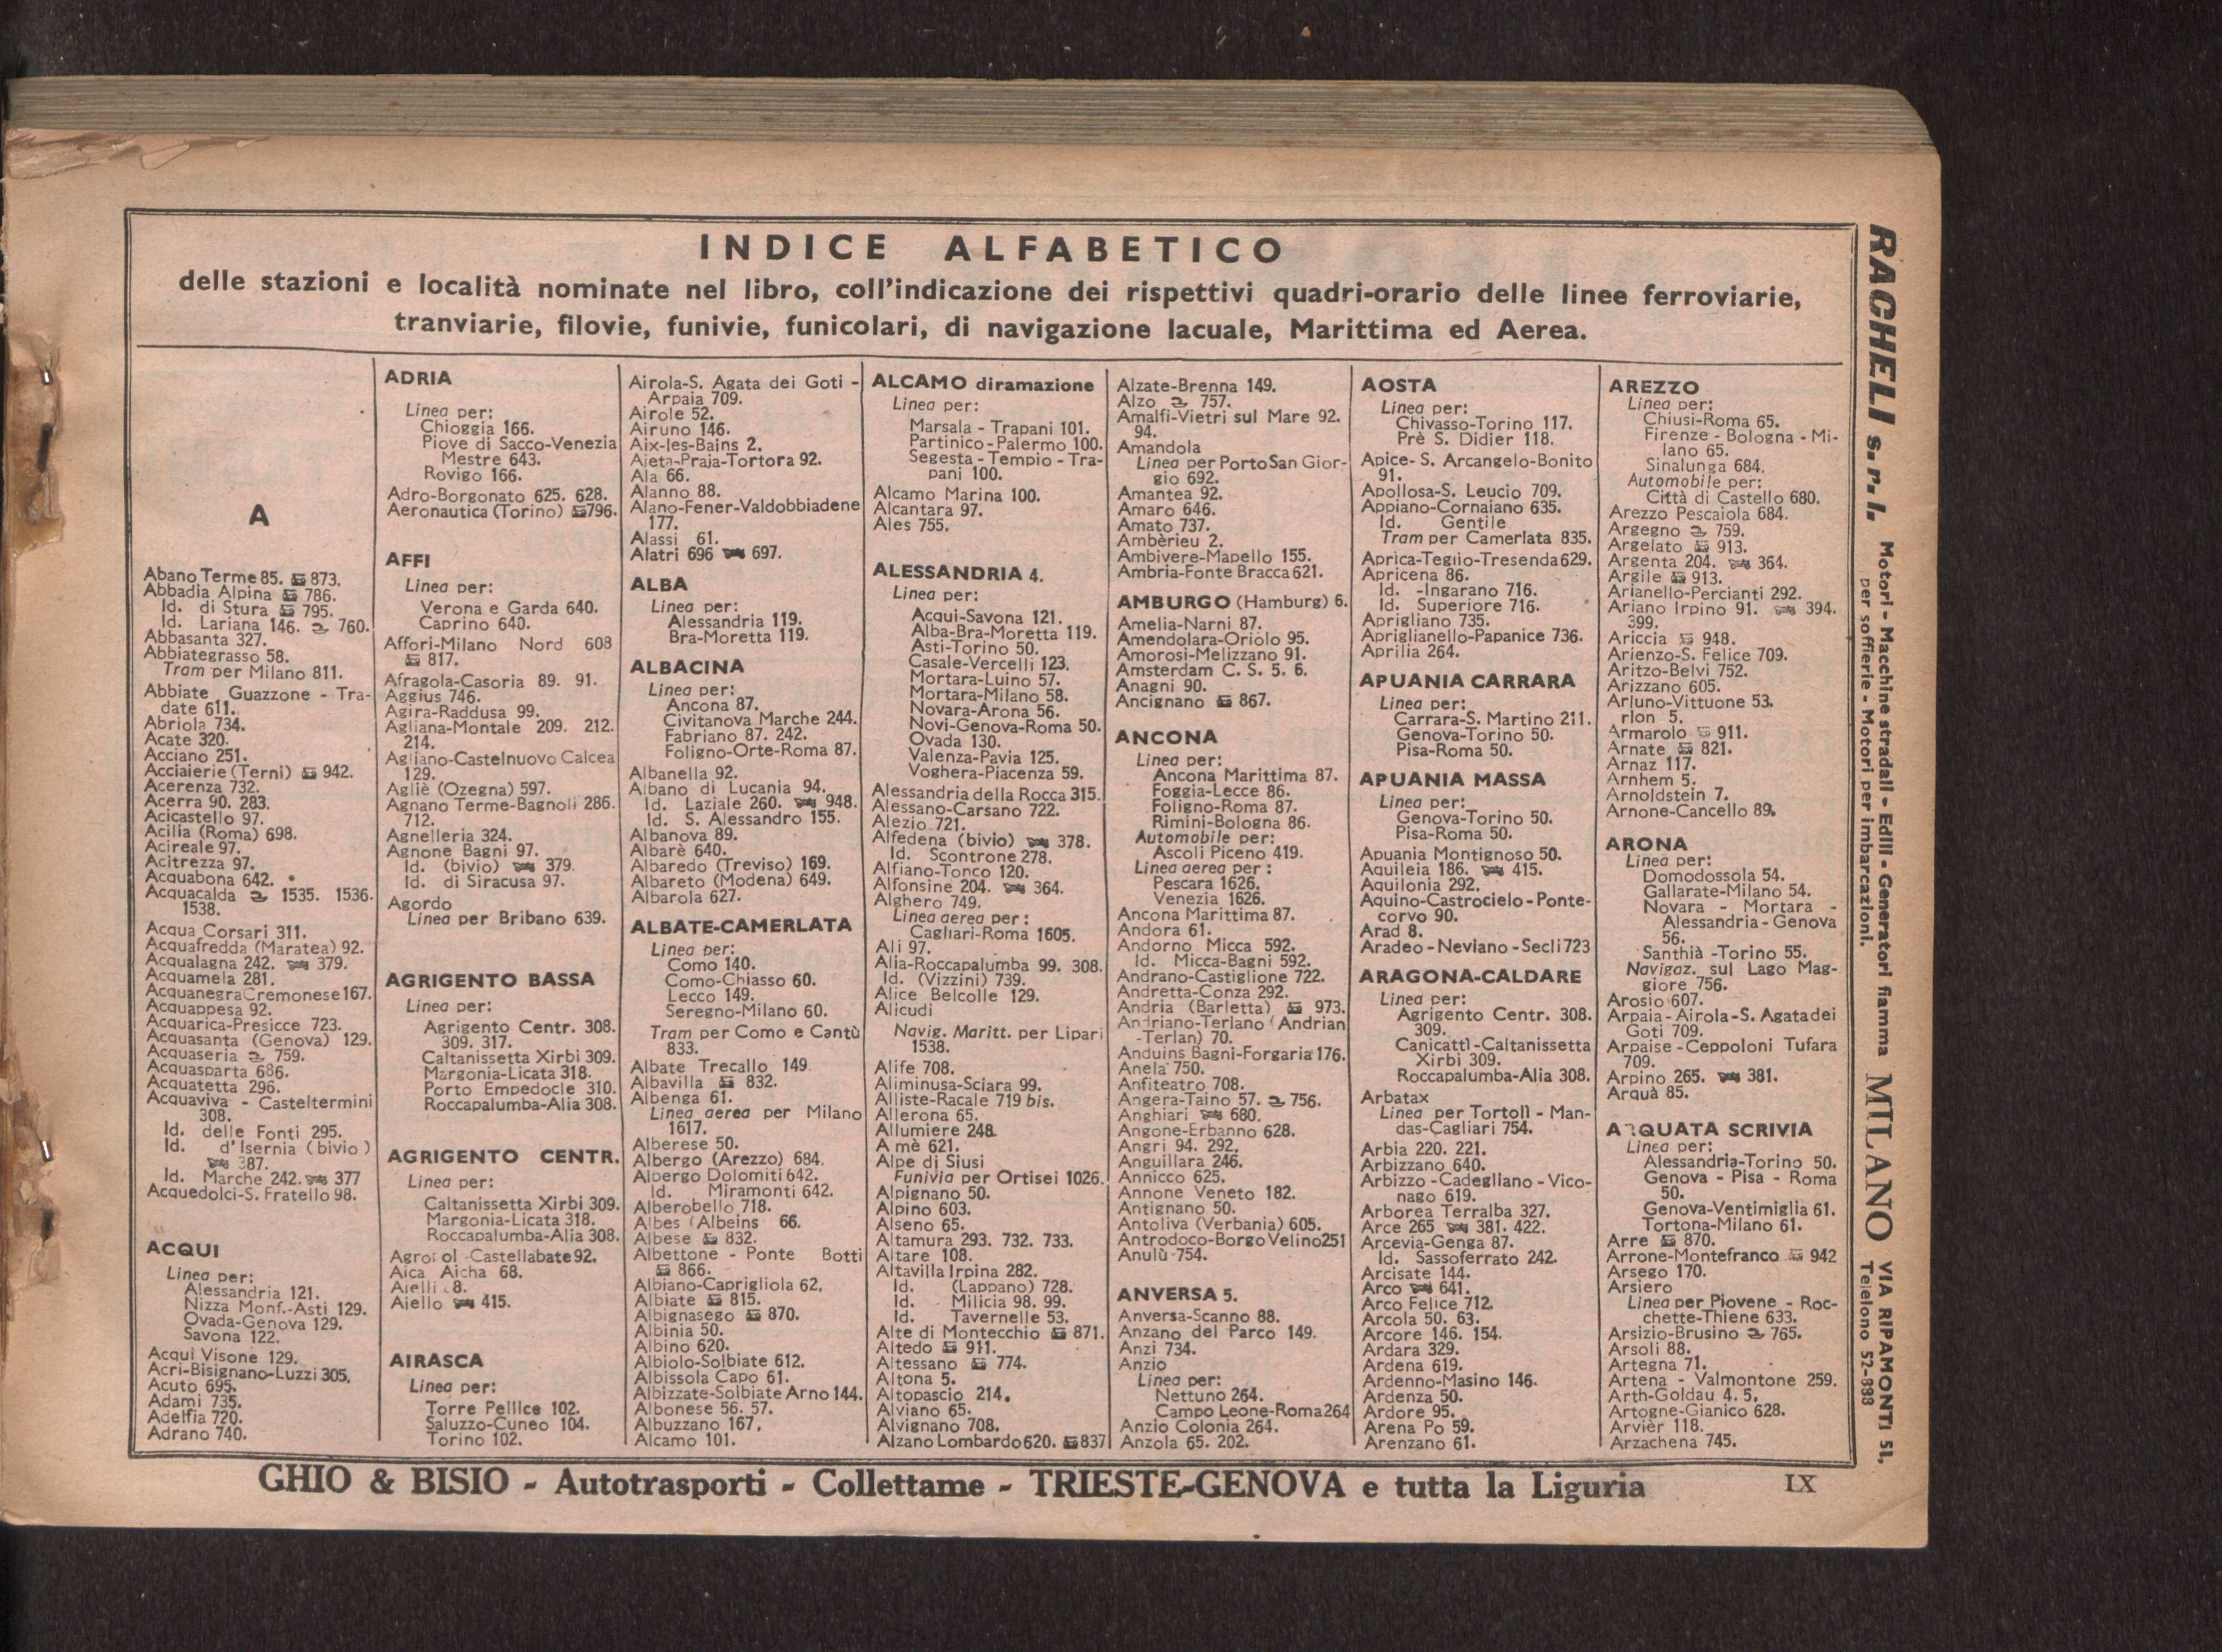 INDICE ALFABETICO
delle stazioni e località nominate nel libro, coll'indicazione dei rispettivi quadri-orario delle linee ferroviarie,
tranviarie, filovie, funivie, funicolari, di navigazione lacuale, Marittima ed Aerea.
A
Abano Terme 85. 873.
Abbadia Alpina 786.
Id. di Stura 795.
Id. Lariana 146. 760.
Abbasanta 327.
Abbiategrasso 58.
Tram per Milano 811.
Abbiate Guazzone - Tra-
date 611.
Abriola 734.
Acate 320.
Acciano 251.
Acciaierie (Terni) 942.
Acerenza 732.
Acerra 90. 283.
Acicastello 97.
Acilia (Roma) 698.
Acireale 97.
Acitrezza 97.
Acquabona 642.
Acquacalda 1535. 1536.
1538.
Acqua Corsari 311.
Acquafredda (Maratea) 92.
Acqualagna 242. 379.
Acquamela 281.
Acquanegra Cremonese 167.
Acquappesa 92.
Acquarica-Presicce 723.
Acquasanta (Genova) 129.
Acquaseria 759.
Acquasparta 686.
Acquatetta 296.
Acquaviva - Casteltermini
308.
Id. delle Fonti 295.
Id. d'Isernia (bivio)
387.
Id. Marche 242. 377
Acquedolci-S. Fratello 98.
ACQUI
Linea per:
Alessandria 121.
Nizza Monf.-Asti 129.
Ovada-Genova 129.
Savona 122.
Acqui Visone 129.
Acri-Bisignano-Luzzi 305.
Acuto 695.
Adami 735.
Adelfia 720.
Adrano 740.
ADRIA
Linea per:
Chioggia 166.
Piove di Sacco-Venezia
Mestre 643.
Rovigo 166.
Adro-Borgonato 625. 628.
Aeronautica (Torino) 796.
AFFI
Linea per:
Verona e Garda 640.
Caprino 640.
Affori-Milano Nord 608
817.
Afragola-Casoria 89. 91.
Aggius 746.
Agira-Raddusa 99.
Agliana-Montale 209. 212.
214.
Agliano-Castelnuovo Calcea
129.
Agliè (Ozegna) 597.
Agnano Terme-Bagnoli 286.
712.
Agnelleria 324.
Agnone Bagni 97.
Id. (bivio) 379.
Id. di Siracusa 97.
Agordo
Linea per Bribano 639.
AGRIGENTO BASSA
Linea per:
Agrigento Centr. 308.
309. 317.
Caltanissetta Xirbi 309.
Margonia-Licata 318.
Porto Empedocle 310.
Roccapalumba-Alia 308.
AGRIGENTO CENTR.
Linea per:
Caltanissetta Xirbi 309.
Margonia-Licata 318.
Roccapalumba-Alia 308.
Castellabate 92.
Aica Aicha 68.
Aielli 8.
Aiello 415.
AIRASCA
Linea per:
Torre Pellice 102.
Saluzzo-Cuneo 104.
Torino 102.
Airola-S. Agata dei Goti -
Arpaia 709.
Airole 52.
Airuno 146.
Aix-les-Bains 2.
Ajeta-Praja-Tortora 92.
Ala 66.
Alanno 88.
Alano-Fener-Valdobbiadene
177.
Alassi 61.
Alatri 696 697.
ALBA
Linea per:
Alessandria 119.
Bra-Moretta 119.
ALBACINA
Linea per:
Ancona 87.
Civitanova Marche 244.
Fabriano 87. 242.
Foligno-Orte-Roma 87.
Albanella 92.
Albano di Lucania 94.
Id. Laziale 260. 948.
Id. S. Alessandro 155.
Albanova 89.
Albarè 640.
Albaredo (Treviso) 169.
Albareto (Modena) 649.
Albarola 627.
ALBATE-CAMERLATA
Linea per:
Como 140.
Como-Chiasso 60.
Lecco 149.
Seregno-Milano 60.
Tram per Como e Cantù
833.
Albate Trecallo 149
Albavilla 832.
Albenga 61.
Linea aerea per Milano
1617.
Alberese 50.
Albergo (Arezzo) 684.
Albergo Dolomiti 642.
Id. Miramonti 642.
Alberobello 718.
Albes (Albeins 66.
Albese 832.
Albettone - Ponte Botti
866.
Albiano-Caprigliola 62.
Albiate 815.
Albignasego 870.
Albinia 50.
Albino 620.
Albiolo-Solbiate 612.
Albissola Capo 61.
Albizzate-Solbiate Arno 144.
Albonese 56. 57.
Albuzzano 167.
Alcamo 101.
ALCAMO diramazione
Linea per:
Marsala - Trapani 101.
Partinico-Palermo 100.
Segesta - Tempio - Tra-
pani 100.
Alcamo Marina 100.
Alcantara 97.
Ales 755.
ALESSANDRIA 4.
Linea per:
Acqui-Savona 121.
Alba-Bra-Moretta 119.
Asti-Torino 50.
Casale-Vercelli 123.
Mortara-Luino 57.
Mortara-Milano 58.
Novara-Arona 56.
Novi-Genova-Roma 50.
Ovada 130.
Valenza-Pavia 125.
Voghera-Piacenza 59.
Alessandria della Rocca 315.
Alessano-Carsano 722.
Alezio 721.
Alfedena (bivio) 378.
Id. Scontrone 278.
Alfiano-Tonco 120.
Alfonsine 204. 364.
Alghero 749.
Linea aerea per:
Cagliari-Roma 1605.
Ali 97.
Alia-Roccapalumba 99. 308.
Id. (Vizzini) 739.
Alice Belcolle 129.
Alicudi
Navig. Maritt. per Lipari
1538.
Alife 708.
Aliminusa-Sciara 99.
Alliste-Racale 719 bis.
Allerona 65.
Allumiere 248.
A mè 621.
Alpe di Siusi
Funivia per Ortisei 1026.
Alpignano 50.
Alpino 603.
Alseno 65.
Altamura 293. 732. 733.
Altare 108.
Altavilla Irpina 282.
Id. (Lappano) 728.
Id. Milicia 98. 99.
Id. Tavernelle 53.
Alte di Montecchio 871.
Altedo 911.
Altessano 774.
Altona 5.
Altopascio 214.
Alviano 65.
Alvignano 708.
Alzano Lombardo 620. 837
Alzate-Brenna 149.
Alzo 757.
Amalfi-Vietri sul Mare 92.
94.
Amandola
Linea per Porto San Gior-
gio 692.
Amantea 92.
Amaro 646.
Amato 737.
Ambèrieu 2.
Ambivere-Mapello 155.
Ambria-Fonte Bracca 621.
AMBURGO (Hamburg) 6.
Amelia-Narni 87.
Amendolara-Oriolo 95.
Amorosi-Melizzano 91.
Amsterdam C. S. 5. 6.
Anagni 90.
Ancignano 867.
ANCONA
Linea per:
Ancona Marittima 87.
Foggia-Lecce 86.
Foligno-Roma 87.
Rimini-Bologna 86.
Automobile per:
Ascoli Piceno 419.
Linea aerea per:
Pescara 1626.
Venezia 1626.
Ancona Marittima 87.
Andora 61.
Andorno Micca 592.
Id. Micca-Bagni 592.
Andrano-Castiglione 722.
Andretta-Conza 292.
Andria (Barletta) 973.
Andriano-Terlano (Andrian
-Terlan) 70.
Anduins Bagni-Forgaria 176.
Anela 750.
Anfiteatro 708.
Angera-Taino 57. 756.
Anghiari 680.
Angone-Erbanno 628.
Angri 94. 292.
Anguillara 246.
Annicco 625.
Annone Veneto 182.
Antignano 50.
Antoliva (Verbania) 605.
Antrodoco-Borgo Velino 251
Anulù 754.
ANVERSA 5.
Anversa-Scanno 88.
Anzano del Parco 149.
Anzi 734.
Anzio
Linea per:
Nettuno 264.
Campo Leone-Roma 264
Anzio Colonia 264.
Anzola 65. 202.
AOSTA
Linea per:
Chivasso-Torino 117.
Prè S. Didier 118.
Apice- S. Arcangelo-Bonito
91.
Apollosa-S. Leucio 709.
Appiano-Cornaiano 635.
Id. Gentile
Tram per Camerlata 835.
Aprica-Teglio-Tresenda 629.
Apricena 86.
Id. -Ingarano 716.
Id. Superiore 716.
Aprigliano 735.
Apriglianello-Papanice 736.
Aprilia 264.
APUANIA CARRARA
Linea per:
Carrara-S. Martino 211.
Genova-Torino 50.
Pisa-Roma 50.
APUANIA MASSA
Linea per:
Genova-Torino 50.
Pisa-Roma 50.
Apuania Montignoso 50.
Aquileia 186. 415.
Aquilonia 292.
Aquino-Castrocielo-Ponte-
corvo 90.
Arad 8.
Aradeo-Neviano-Secli 723
ARAGONA-CALDARE
Linea per:
Agrigento Centr. 308.
309.
Canicattì-Caltanissetta
Xirbi 309.
Roccapalumba-Alia 308.
Arbatax
Linea per Tortolì - Man-
das-Cagliari 754.
Arbia 220. 221.
Arbizzano 640.
Arbizzo -Cadegliano - Vico-
nago 619.
Arborea Terralba 327.
Arce 265 381. 422.
Arcevia-Genga 87.
Id. Sassoferrato 242.
Arcisate 144.
Arco 641.
Arco Felice 712.
Arcola 50. 63.
Arcore 146. 154.
Ardara 329.
Ardena 619.
Ardenno-Masino 146.
Ardenza 50.
Ardore 95.
Arena Po 59.
Arenzano 61.
AREZZO
Linea per:
Chiusi-Roma 65.
Firenze - Bologna - Mi-
lano 65.
Sinalunga 684.
Automobile per:
Città di Castello 680.
Arezzo Pescaiola 684.
Argegno 759.
Argelato 913.
Argenta 204. 364.
Argile 913.
Arianello-Percianti 292.
Ariano Irpino 91. 394.
399.
Ariccia 948.
Arienzo-S. Felice 709.
Aritzo-Belvi 752.
Arizzano 605.
Arluno-Vittuone 53.
rlon 5.
Armarolo 911.
Arnate 821.
Arnaz 117.
Arnhem 5.
Arnoldstein 7.
Arnone-Cancello 89.
ARONA
Linea per:
Domodossola 54.
Gallarate-Milano 54.
Novara - Mortara -
Alessandria-Genova
56.
Santhià -Torino 55.
Navigaz. sul Lago Mag-
giore 756.
Arosio 607.
Arpaia-Airola-S. Agata dei
Goti 709.
Arpaise -Ceppoloni Tufara
709.
Arpino 265. 381.
Arquà 85.
ARQUATA SCRIVIA
Linea per:
Alessandria-Torino 50.
Genova - Pisa - Roma
50.
Genova-Ventimiglia 61.
Tortona-Milano 61.
Arre 870.
Arrone-Montefranco 942
Arsego 170.
Arsiero
Linea per Piovene - Roc-
chette-Thiene 633.
Arsizio-Brusino 765.
Arsoli 88.
Artegna 71.
Artena - Valmontone 259.
Arth-Goldau 4. 5.
Artogne-Gianico 628.
Arvièr 118.
Arzachena 745.
RACHELI s. r. l. Motori - Macchine stradali - Edili - Generatori fiamma
per soffierie - Motori per imbarcazioni.
MILANO VIA RIPAMONTI 51.
Telefono 52-898
GHIO & BISIO - Autotrasporti - Collettame - TRIESTE-GENOVA e tutta la Liguria
IX